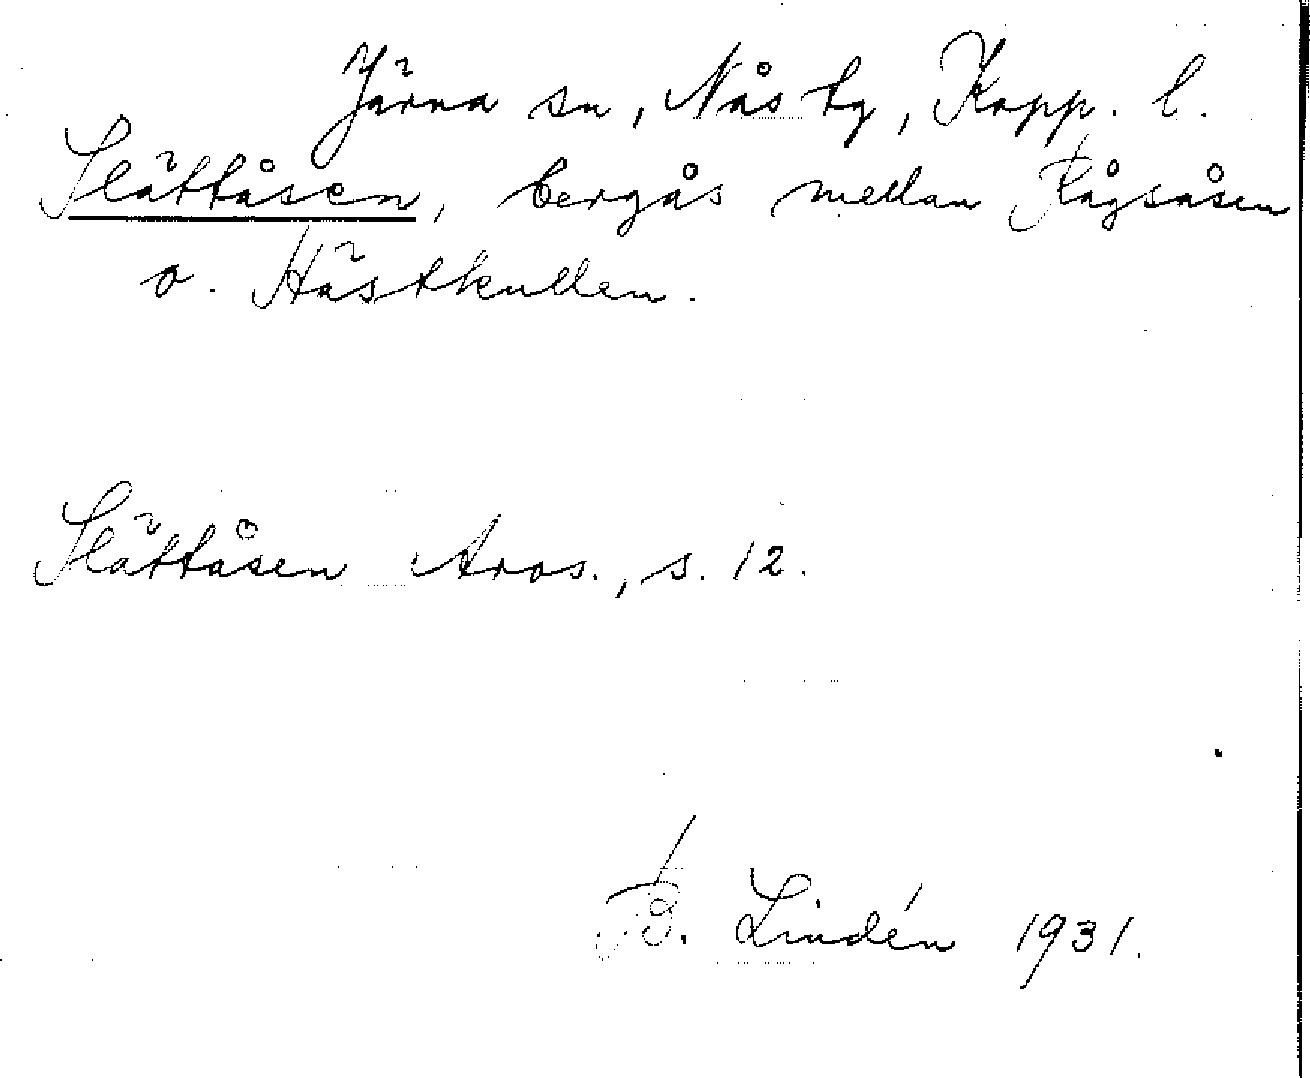 Järna sn, Nås tg, Kopp. l.
Slättåsen, bergås mellan Rågsåsen
o. Hästkullen.
Slättåsen Aros., s. 12.
B. Lindén 1931.